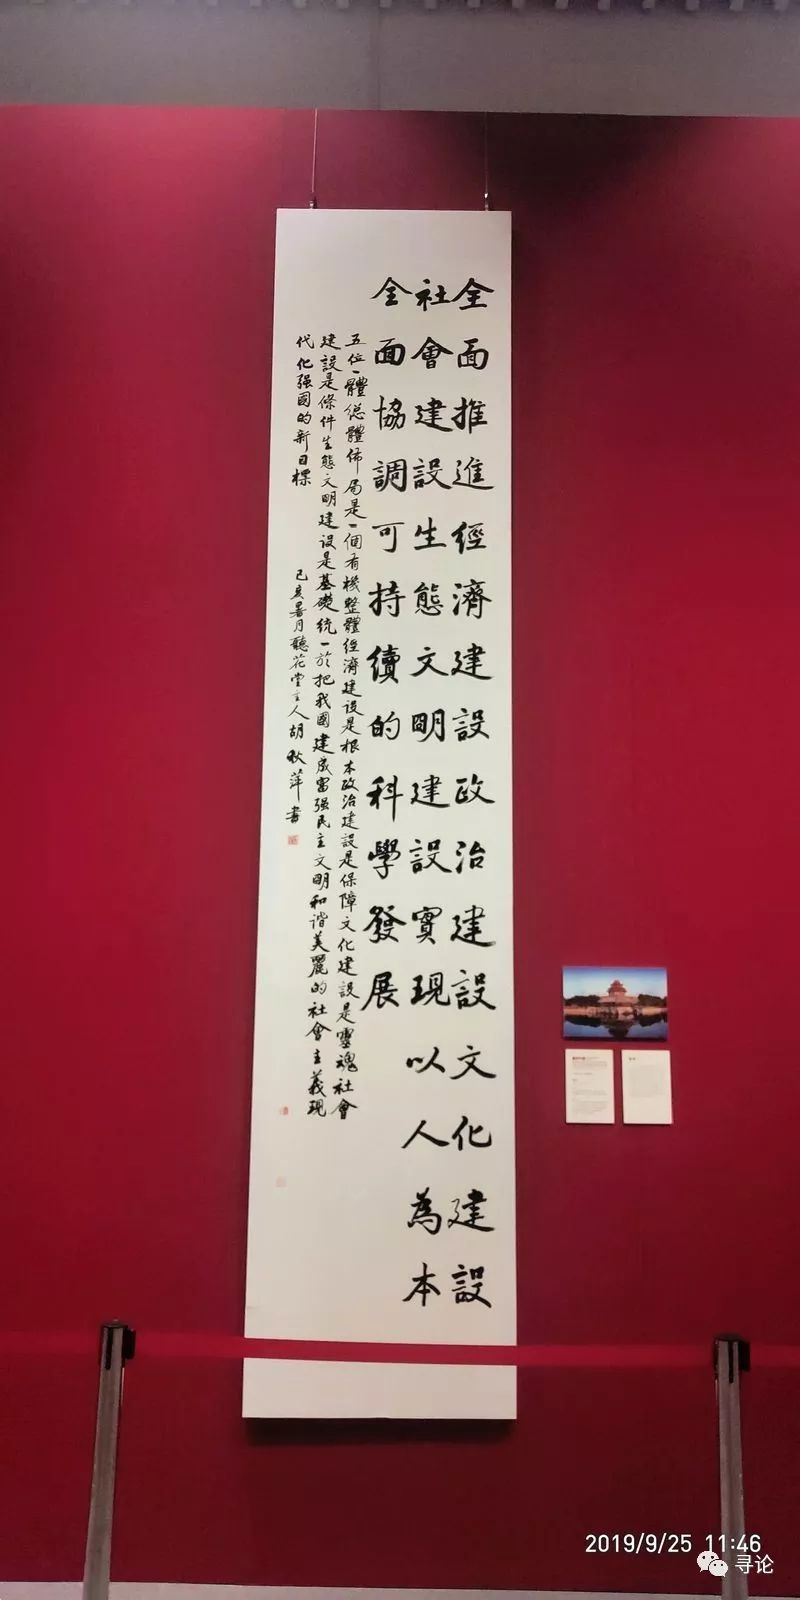 全面推進經濟建設政治建設文化建設
社會建設生態文明建設實現以人為本
全面協調可持續的科學發展
五位一體總體佈局是一個有機整體經濟建设是根本政治建設是保障文化建設是靈魂社會
建設是條件生態文明建设是基礎統一於把我國建成富强民主文明和谐美麗的社會主義現
代化强國的新目標
己亥暑月聽花堂主人胡秋萍書
2019/9/25 11:46
寻论